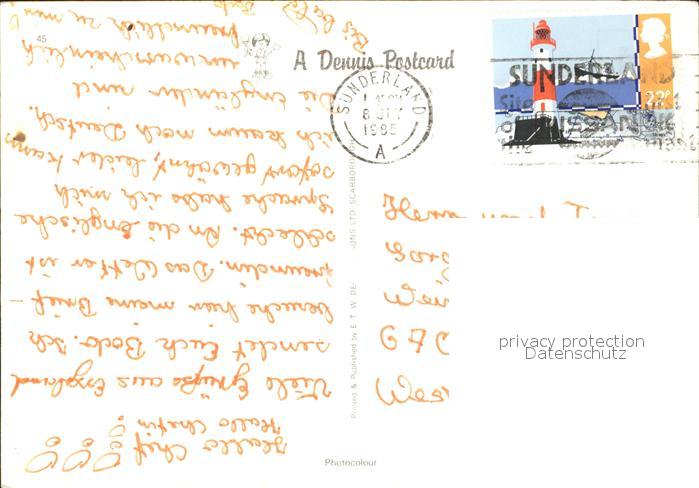 45
A Dennis Postcard
SUNDERLAND
8 JLY
1985
A
SUNDERLAND
NISSAN
22P
Hallo Chef
Hallo Chefin
Viele Grüße aus England
sendet Euch Bodo. Ich
besuche hier meine Brief-
freundin. Das Wetter ist
schlecht. An die englische
Sprache habe ich mich
sofort gewöhnt, leider kann
ich kaum noch Deutsch.
Die Engländer sind
unwahrscheinlich
freundlich zu mir!
Bis bald
Bodo
Herrn und
Wei
670
Wes
Printed & Published by E. T. W. DE SONS LTD SCARBOROUGH
Photocolour
privacy protection
Datenschutz